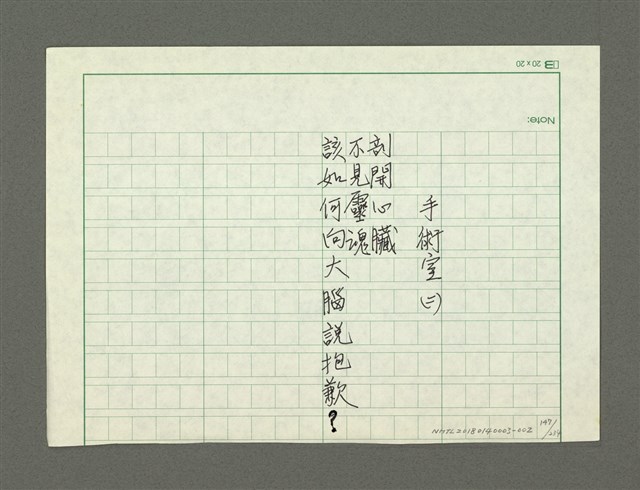 手術室(二)
剖開心臟
不見靈魂
該如何向大腦說抱歉？
Note:
20 x 20
NMTL20180140003-002